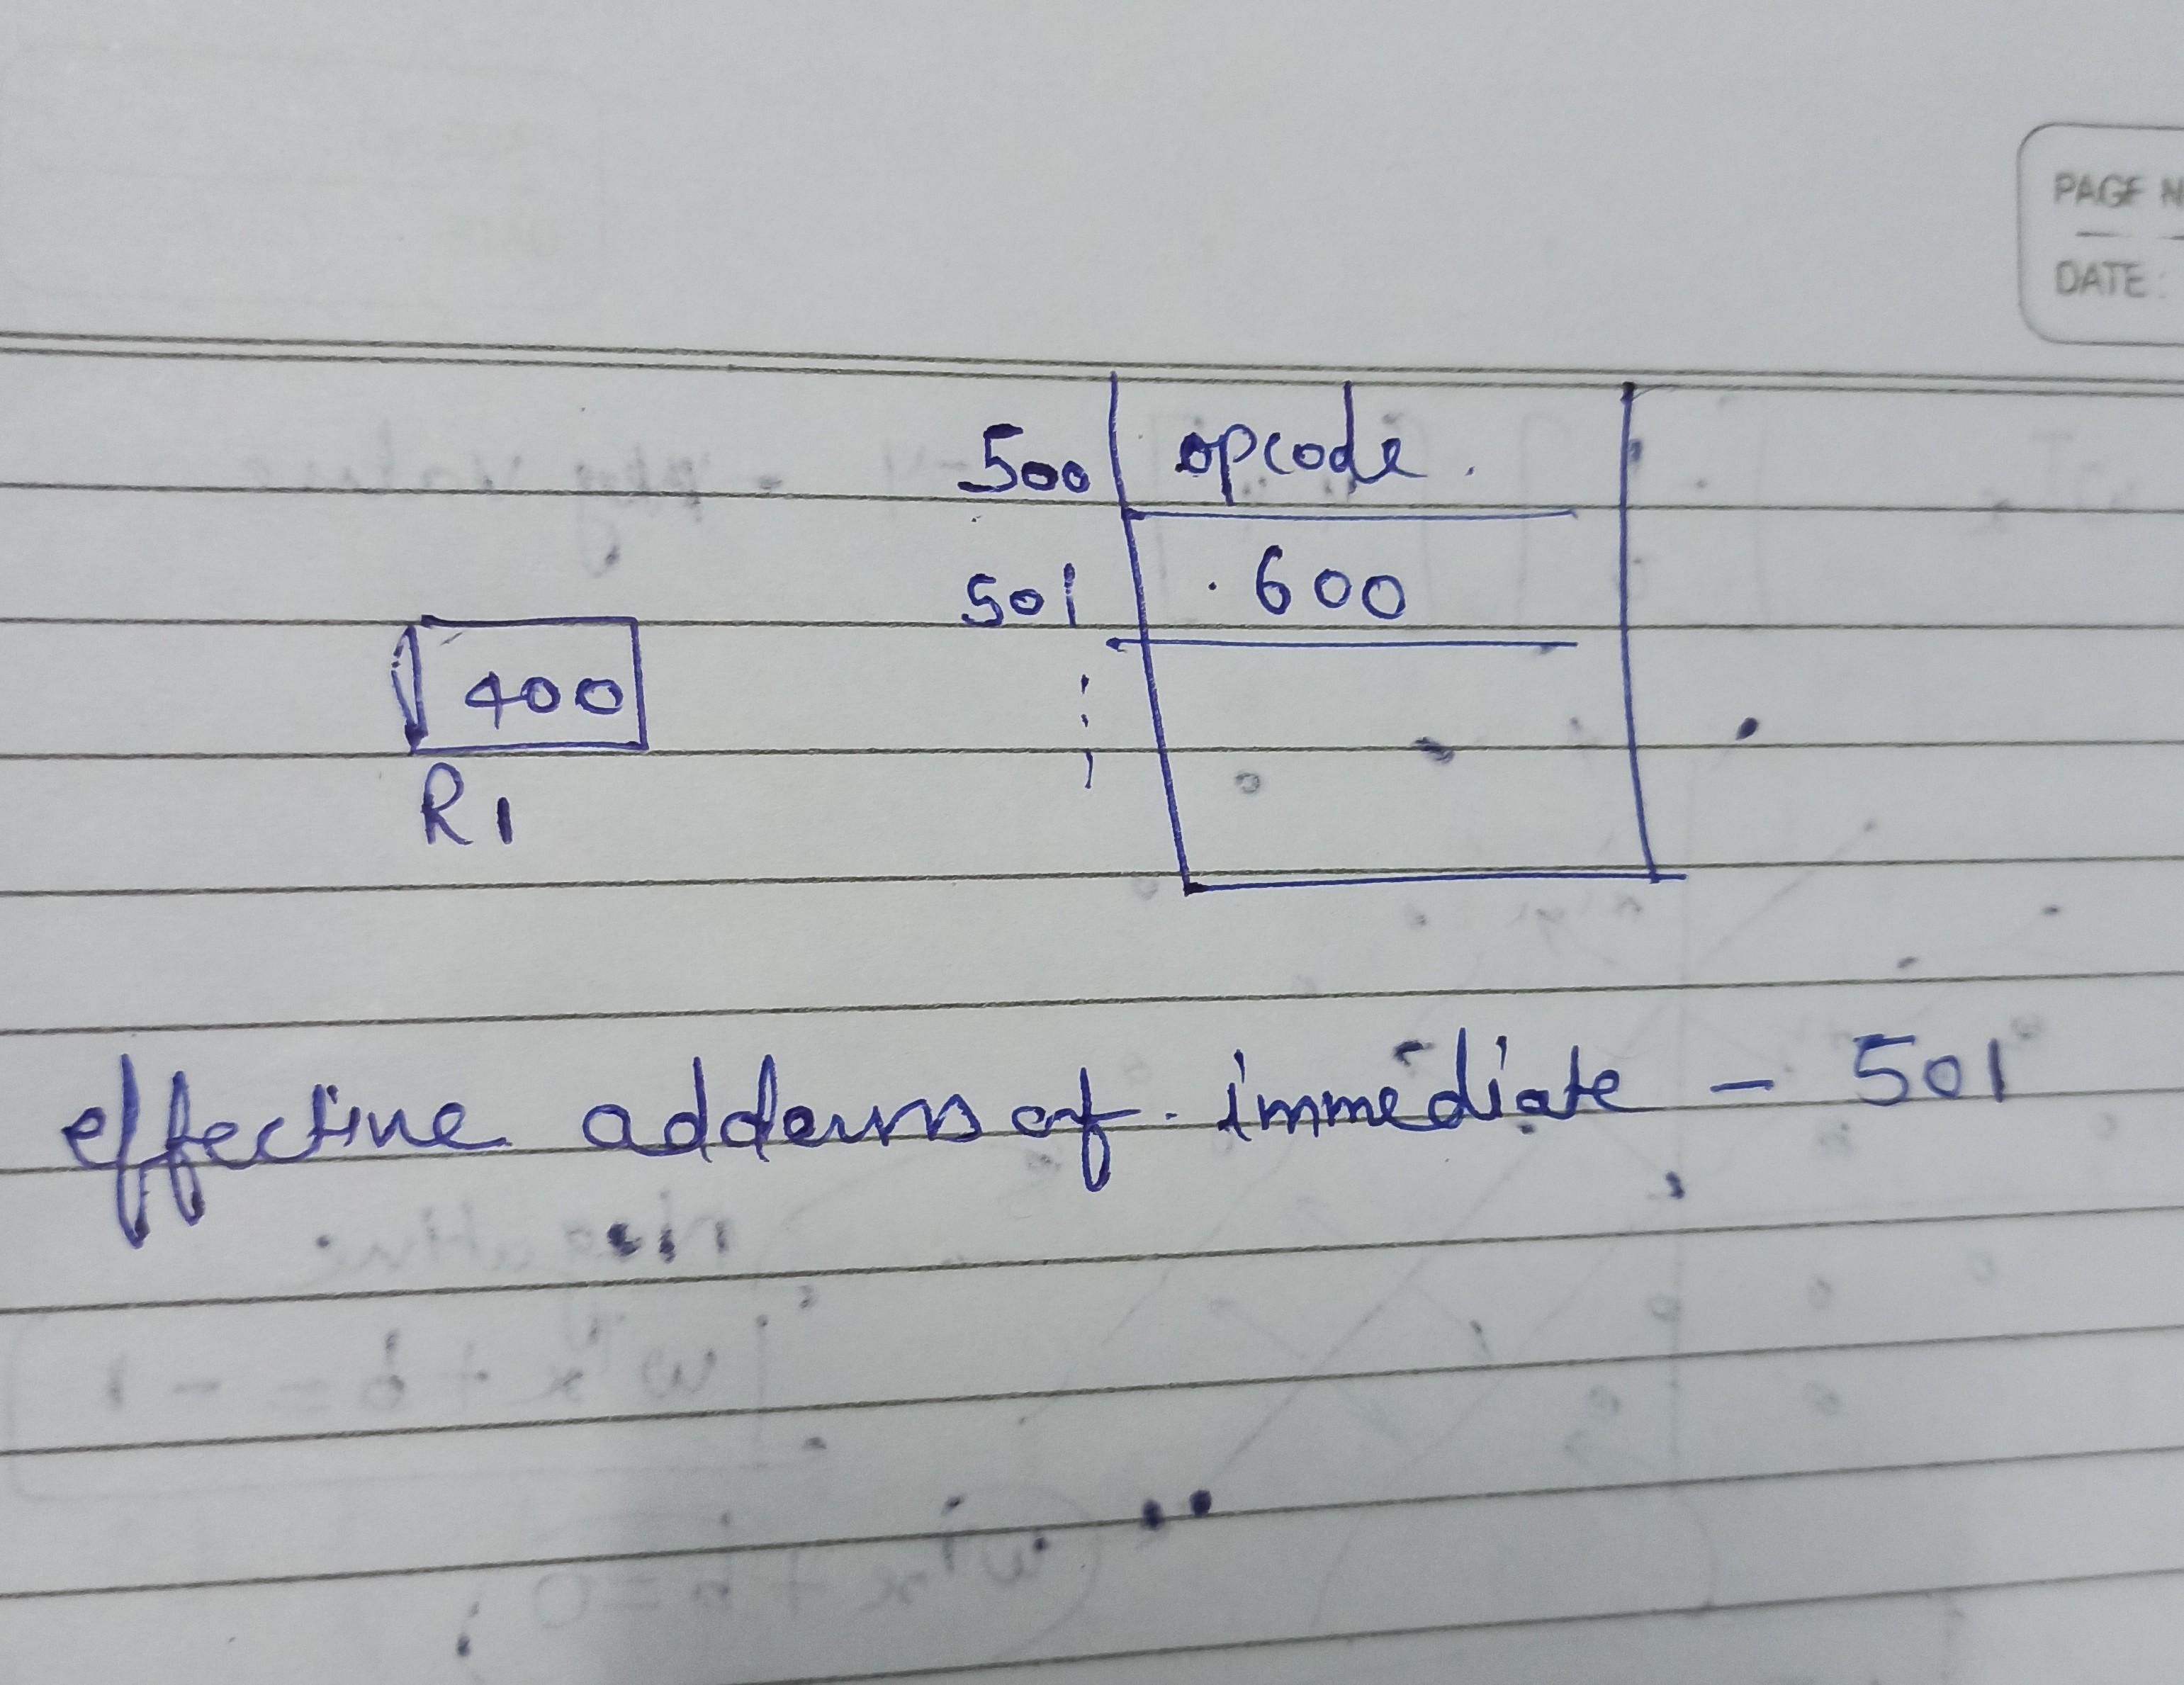 PAGE N
DATE:
500 opcode.
501 600
400
R1
effective adderss of immediate - 501